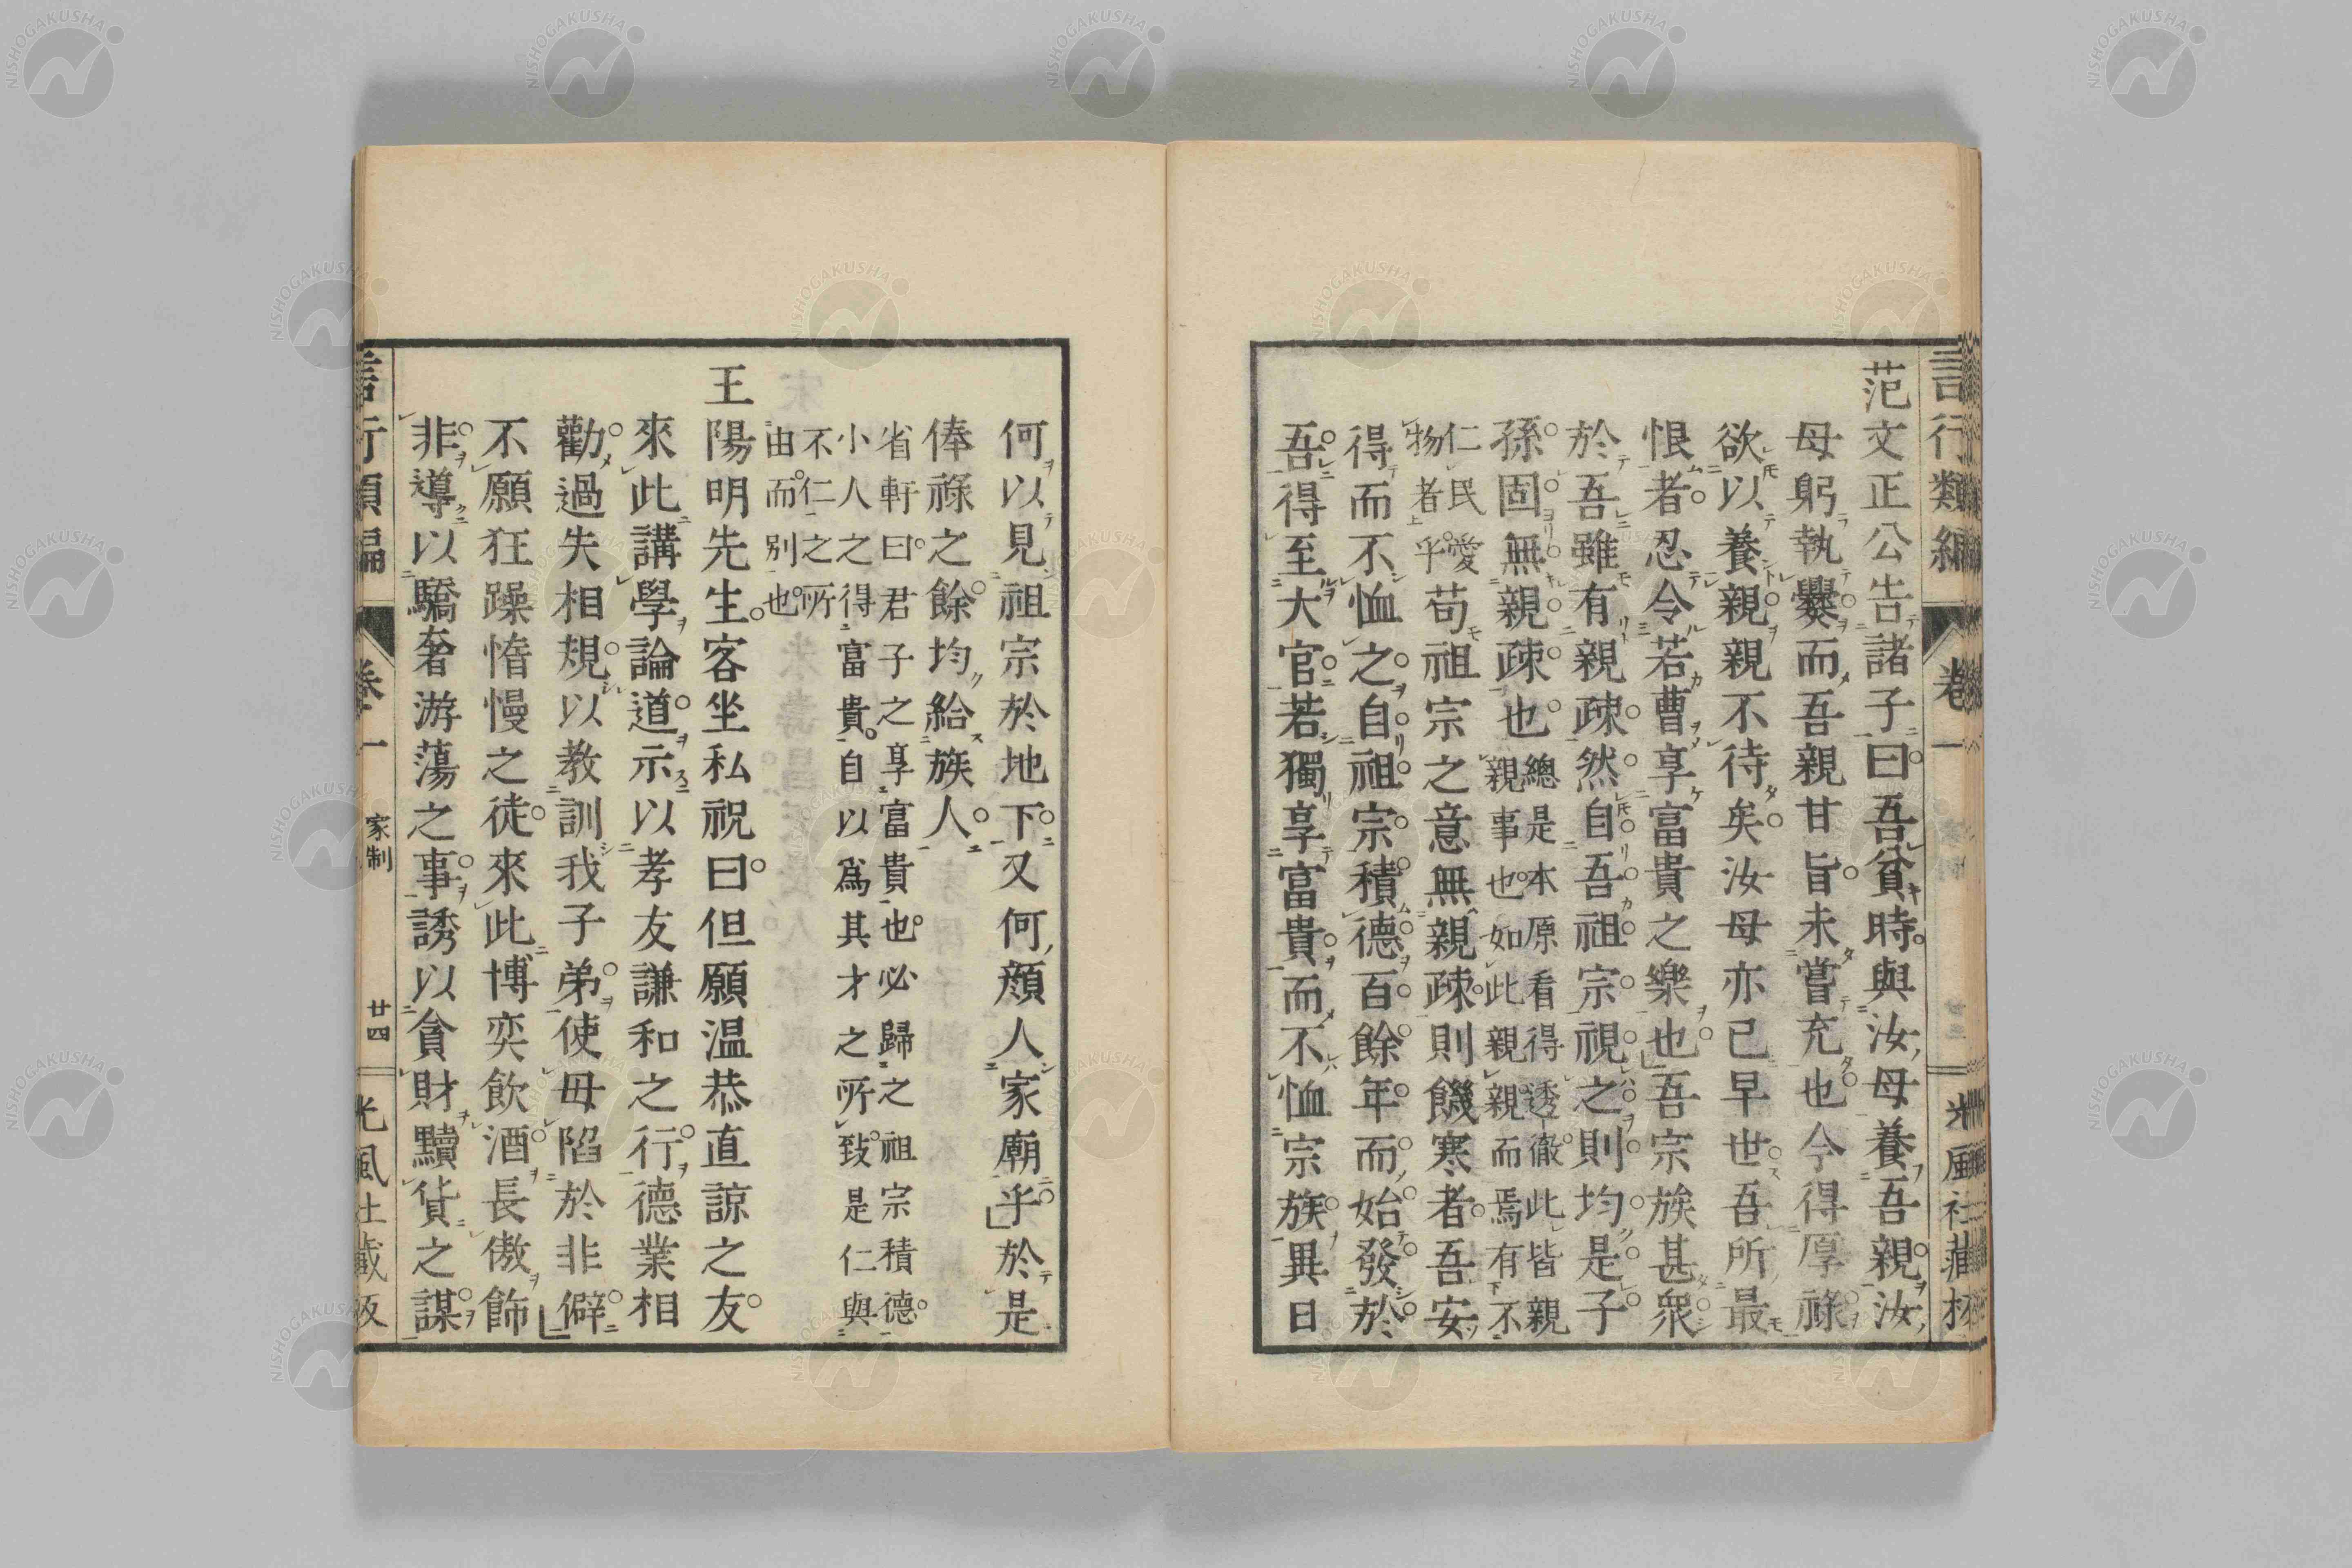 言行類編 卷一 光風社藏板
范文正公告諸子曰吾貧時與汝母養吾親汝
母躬執爨而吾親甘旨未嘗充也今得厚祿
欲以養親親不待矣汝母亦已早世吾所最
恨者忍令若曹享富貴之樂也吾宗族甚衆
於吾雖有親疎然自吾祖宗視之則均是子
孫固無親疎也
總是本原看得透徹此皆親
親事也如此親親而焉有不
仁民愛
物者乎
苟祖宗之意無親疎則饑寒者吾安
得而不恤之自祖宗積德百餘年而始發於
吾得至大官若獨享富貴而不恤宗族異日
何以見祖宗於地下又何顔人家廟乎於是
俸祿之餘均給族人
省軒曰君子之享富貴也必歸之祖宗積德
小人之得富貴自以爲其才之所致是仁與
不仁之所
由而別也
王陽明先生客坐私祝曰但願温恭直諒之友
來此講學論道示以孝友謙和之行德業相
勸過失相規以教訓我子弟使毋陷於非僻
不願狂躁惰慢之徒來此博奕飮酒長傲飾
非導以驕奢游蕩之事誘以貪財黷貨之謀
言行類編 卷一 家制 廿四 光風社藏板
NISHOGAKUSHA